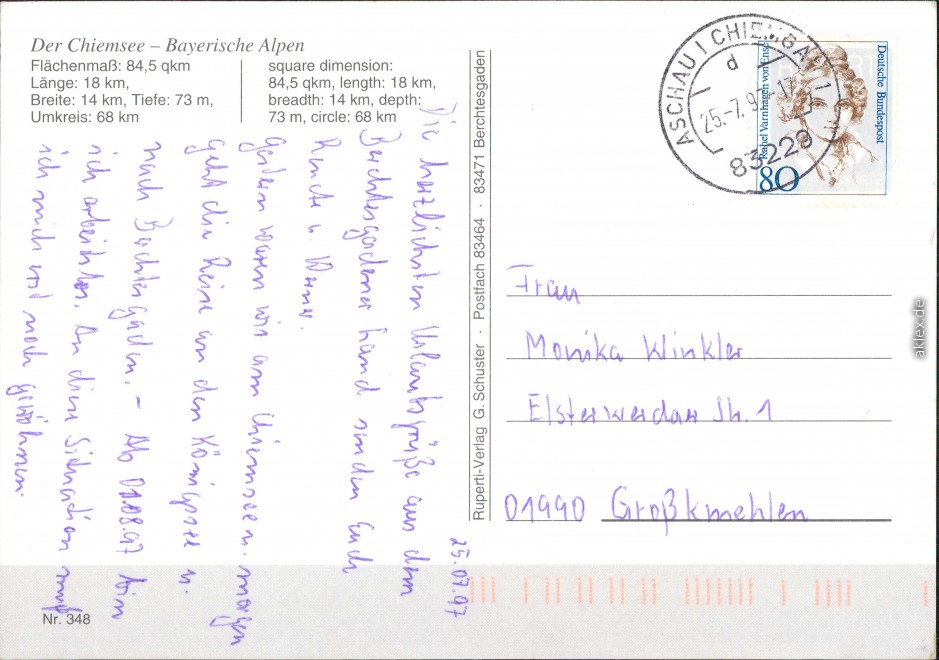 Der Chiemsee – Bayerische Alpen
Flächenmaß: 84,5 qkm
Länge: 18 km,
Breite: 14 km, Tiefe: 73 m,
Umkreis: 68 km
square dimension:
84,5 qkm, length: 18 km,
breadth: 14 km, depth:
73 m, circle: 68 km
25.07.97
Die herzlichsten Urlaubsgrüße aus dem
Berchtesgadener Land senden Euch
Renate u. Werner.
Gestern waren wir am Chiemsee. Morgen
geht die Reise an den Königssee u.
nach Berchtesgaden. – Ab 01.08.97 bin
ich arbeitslos. An diese Situation muß
ich mich erst noch gewöhnen.
Nr. 348
Ruperti-Verlag G. Schuster · Postfach 83464 · 83471 Berchtesgaden
ASCHAU I CHIEMGAU
d
25.-7.9 -17
83229
Deutsche Bundespost
Rahel Varnhagen von Ense
80
Frau
Monika Winkler
Elsterwerdaer Str. 1
01990 Großkmehlen
aklex.de